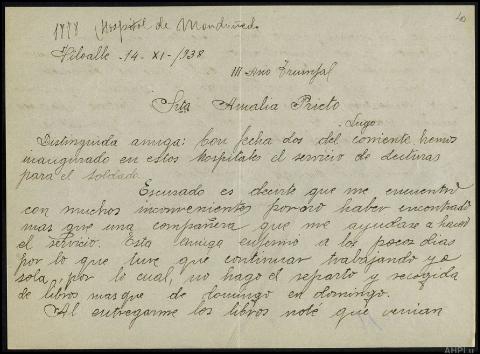 1938 Hospital de Mondoñedo
40
Viloalle - 14 - XI - 1938
III Año Triunfal
Srta Amalia Prieto
- Lugo
Distinguida amiga: Con fecha dos del corriente hemos
inaugurado en estos Hospitales el servicio de lecturas
para el soldado.
Escusado es decirle que me encuentro
con muchos inconvenientes por no haber encontrado
mas que una compañera que me ayudase a hacer
el servicio. Esta amiga enfermó a los pocos dias
por lo que tuve que continuar trabajando yo
sola, por lo cual, no hago el reparto y recogida
de libros mas que de domingo en domingo.
Al entregarme los libros noté que venian
AHPLu